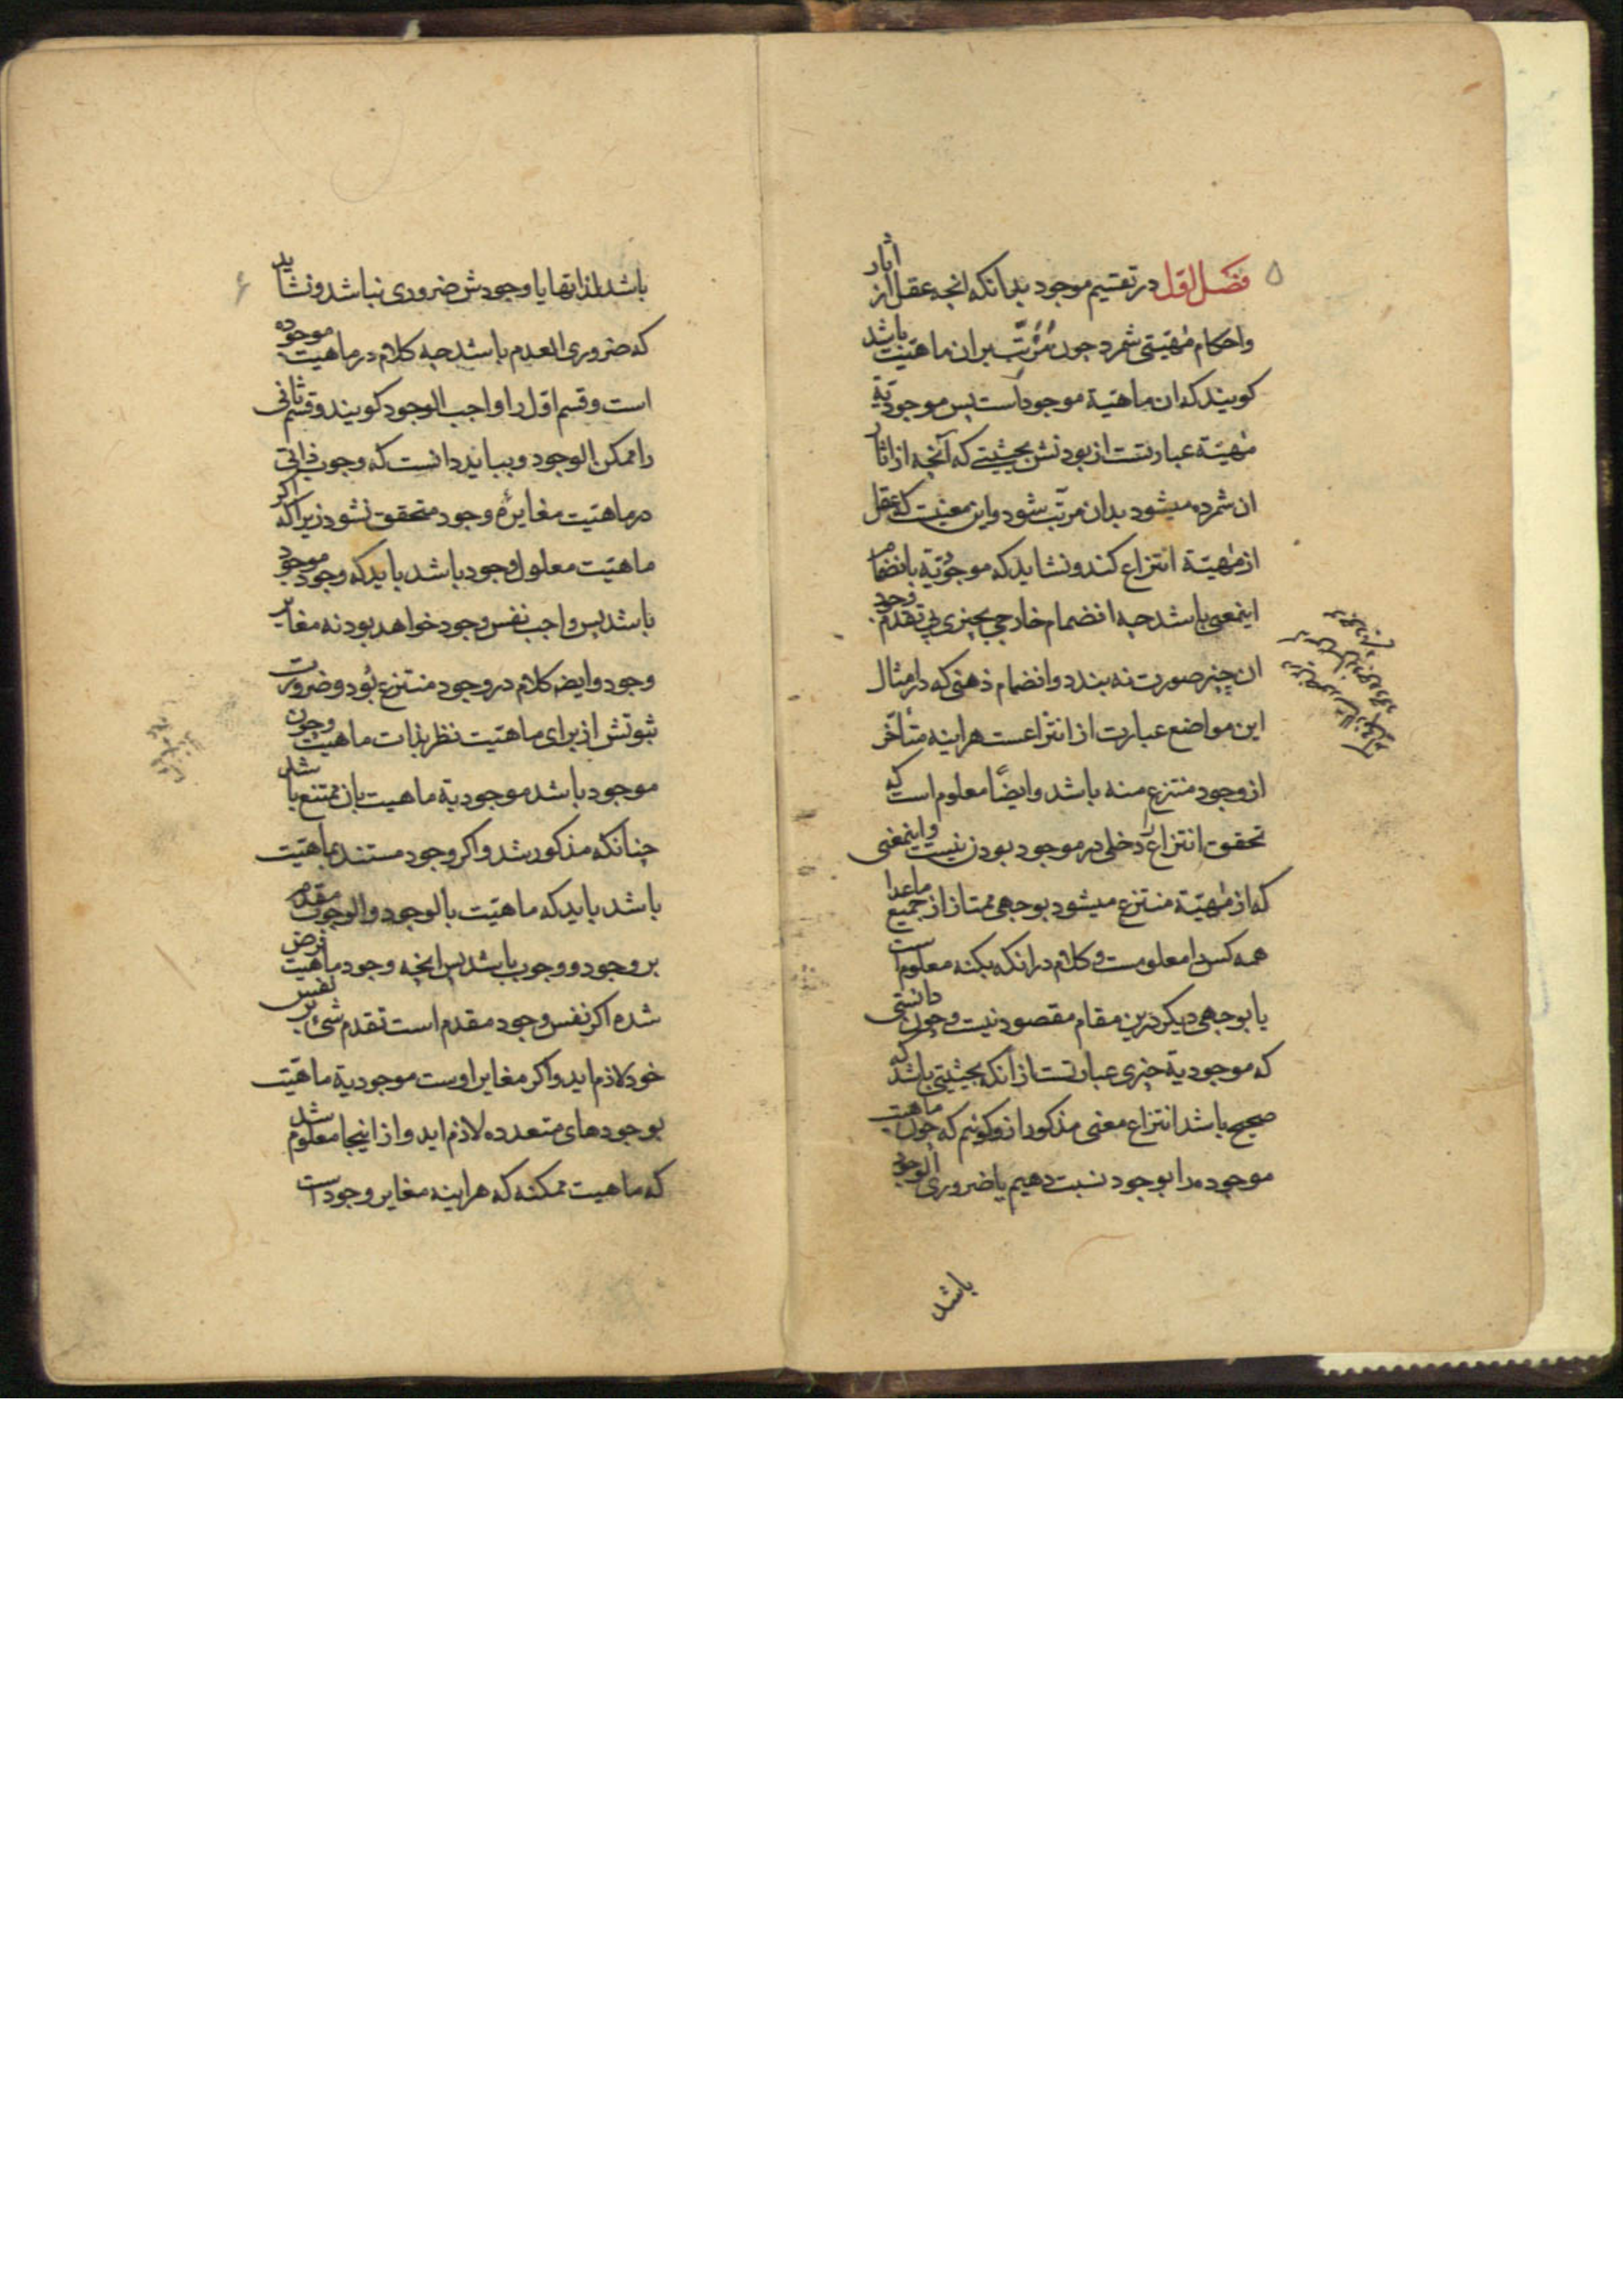 ۵
فصل اول در تقسیم موجود بدانکه انچه عقل از اثار
واحکام مهیتی شمرد چون مرتب بران ماهیت باشد
کویند که ان ماهیة موجود است پس موجودیة
مهیة عبارتست از بودنش بحیثیتی که آنچه از اثار
ان شمرده میشود بدان مرتب شود واین معنیست که عقل
از مهیة انتزاع کند ونشاید که موجودیة بانضمام
اینمعنی باشد چه انضمام خارجی بچیزی بی تقدم وجود
ان چیز صورت نه بندد وانضمام ذهنی که در امثال
این مواضع عبارت از انتزاعست هراینه متأخر
از وجود منتزع منه باشد وایضًا معلوم است که
تحقق انتزاع را دخلی در موجود بودن نیست واینمعنی
که از مهیة منتزع میشود بوجهی ممتاز از جمیع ماعدا
همه کس را معلومست وکلام در انکه بکنه معلوم است
یا بوجهی دیکر درین مقام مقصود نیست وچون دانستی
که موجودیة چیزی عبارتست از انکه بحیثیتی باشد که
صحیح باشد انتزاع معنی مذکور ازو کوئیم که چون ماهیت
موجوده را بوجود نسبت دهیم یا ضروری الوجود
باشد
۶
باشد لذاتها یا وجودش ضروری نباشد ونشاید
که ضروری العدم باشد چه کلام در ماهیت موجوده
است وقسم اول را واجب الوجود کویند وقسم ثانی
را ممکن الوجود وبباید دانست که وجوب ذاتی
در ماهیت مغایرهٔ وجود متحقق نشود زیرا که اکر
ماهیت معلول وجود باشد باید که وجود موجود
باشد پس واجب نفس وجود خواهد بود نه مغایر
وجود وایضا کلام در وجود منتزع بود وضرورت
ثبوتش از برای ماهیت نظر بذات ماهیت وچون
موجود باشد موجودیة ماهیت بان ممتنع باشد
چنانکه مذکور شد واکر وجود مستند بماهیت
باشد باید که ماهیت بالوجود والوجوب مقدم
بر وجود ووجوب باشد پس انچه وجود ماهیت فرض
شده اکر نفس وجود مقدم است تقدم شیٔ بر نفس
خود لازم اید واکر مغایر اوست موجودیة ماهیت
بوجودهای متعدده لازم اید واز اینجا معلوم شد
که ماهیت ممکنه که هراینه مغایر وجود است